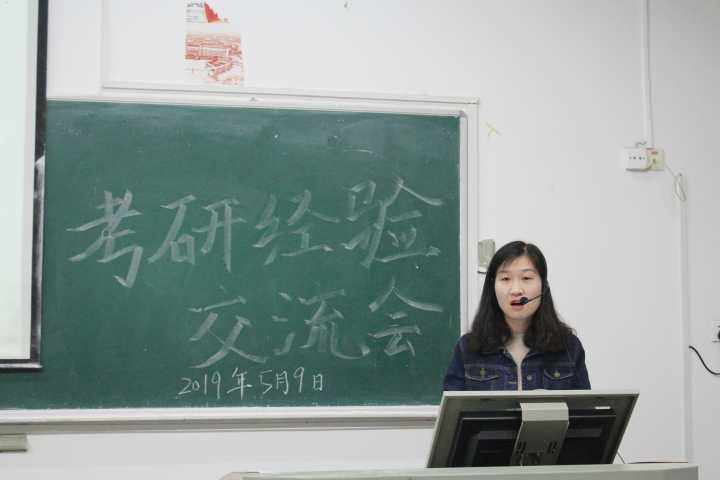 考研经验
交流会
2019年5月9日